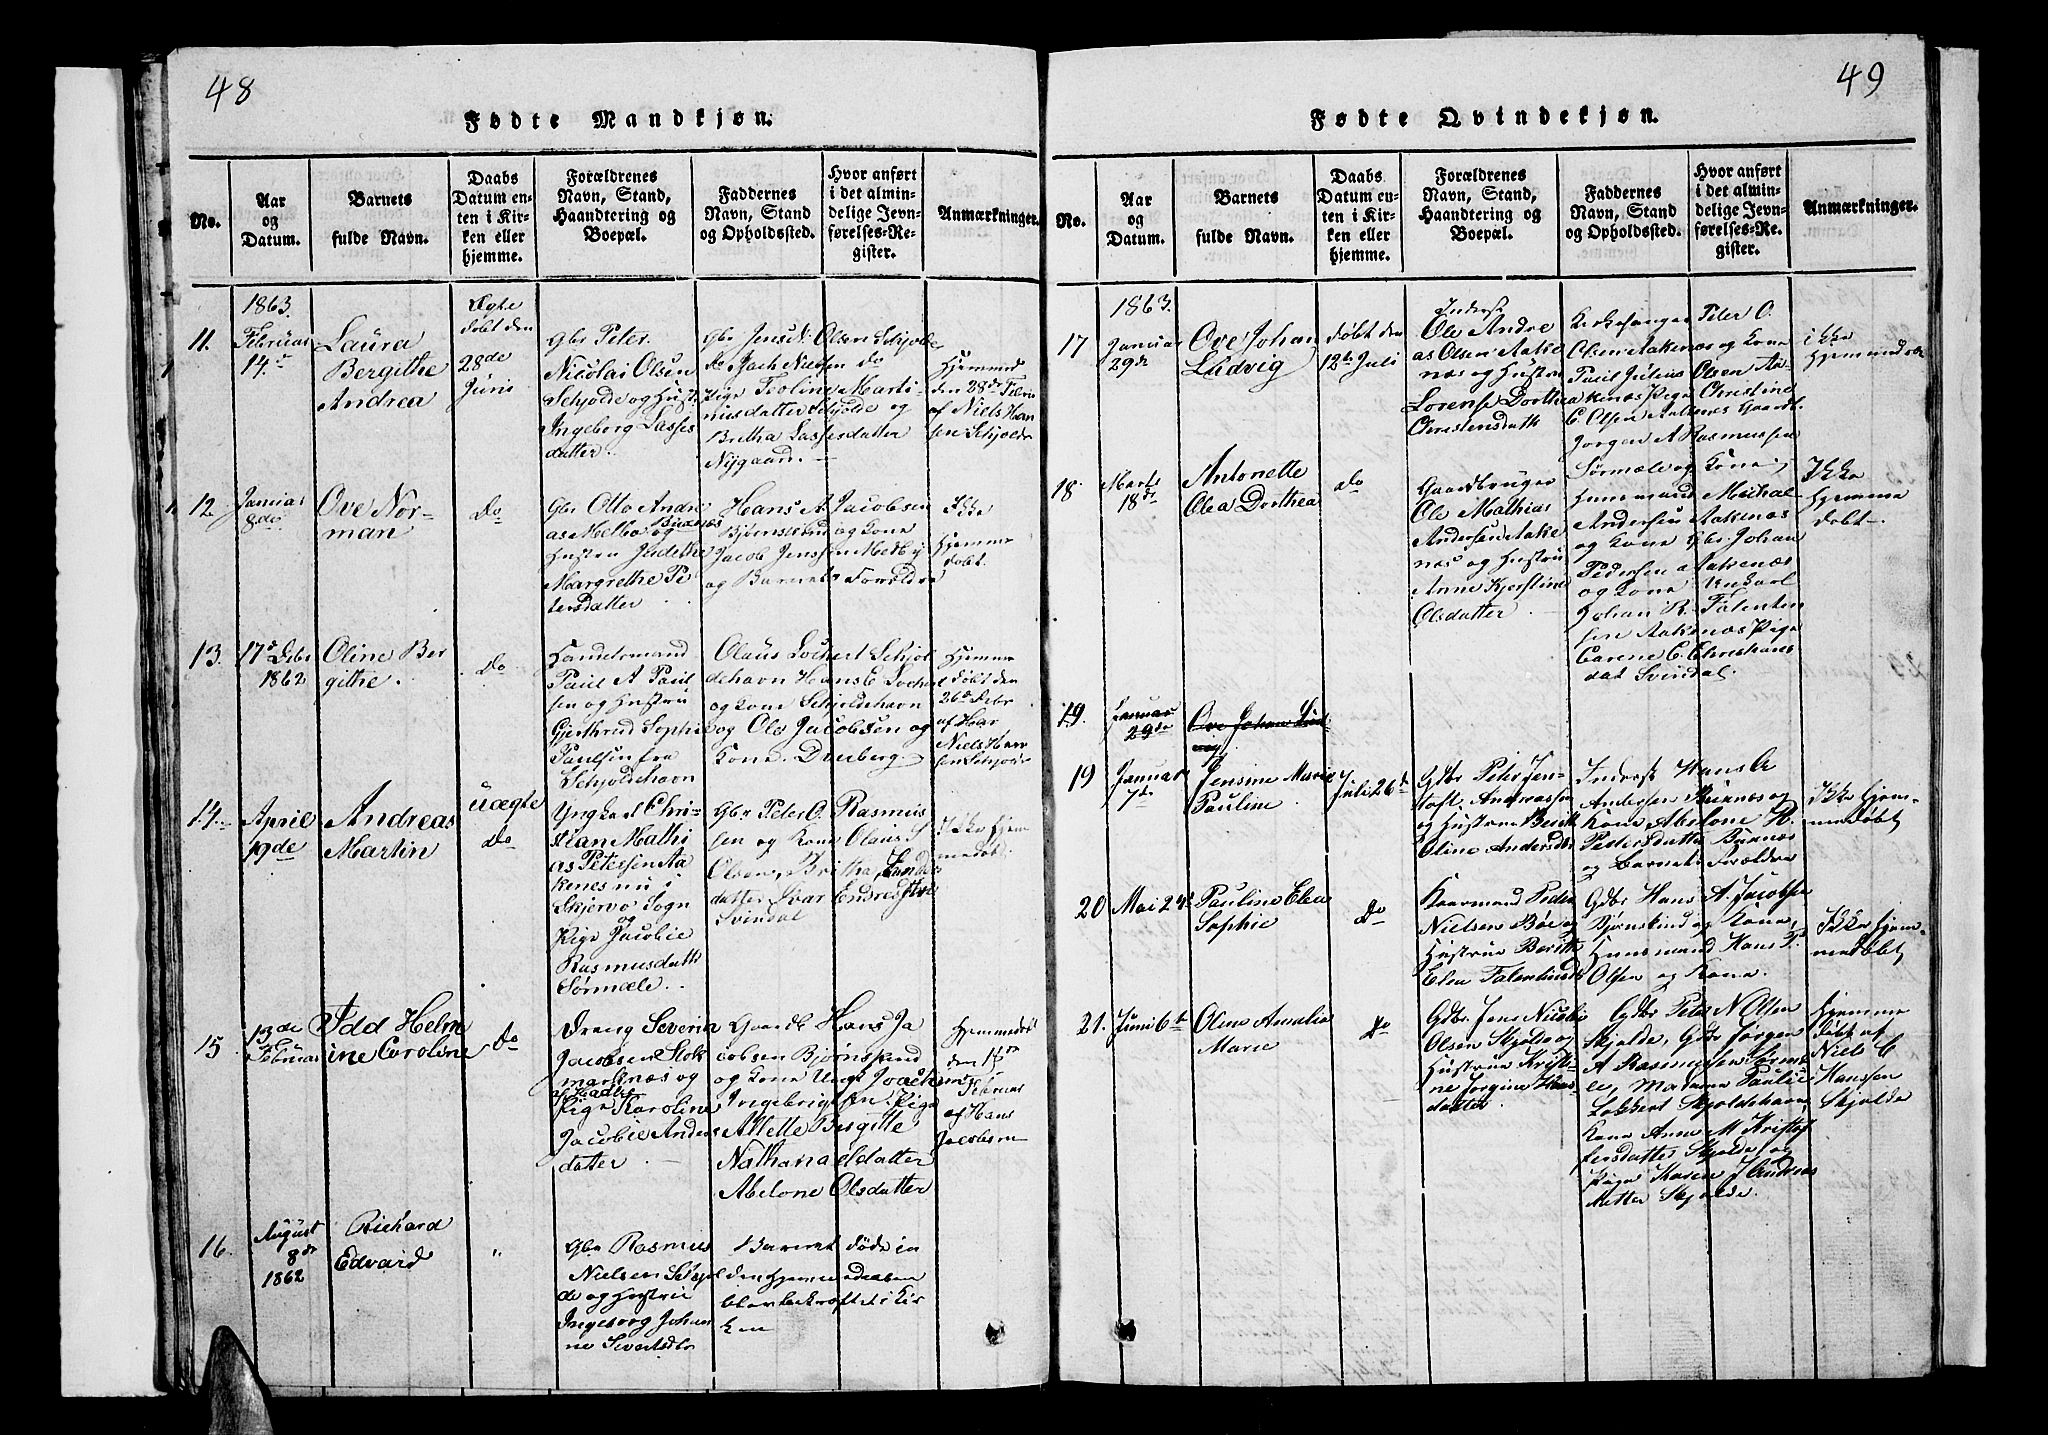 48
Fødte Mandkjøn.
No.
Aar
og
Datum.
Barnets
fulde Navn.
Daabs
Datum en-
ten i Kir-
ken eller
hjemme.
Forældrenes
Navn, Stand,
Haandtering og
Boepæl.
Faddernes
Navn, Stand
og Opholdssted.
Hvor anført
i det almin-
delige Jevn-
førelses-Re-
gister.
Anmærkninger.
11.
1863.
Februar
14.
Laura
Bergithe
Andrea
Ægte
døbt den
28de
Juni
Gbr Peter
Nicolai Olsen
Schjolde og Hustr
Ingeborg Lasses
datter.
Gbr Jens N. Olsen Schjolde
Pige Toline Marti-
nusdatter Schjolde og
Bretha Lassesdatter
Nygaard.
Hjemmed
den 28de Febru
af Niels Han
sen Schjolde
12
Januar
8de
Ove Nor-
man
Do
Gbr Otto Andre
as Melbo og
Buxnes
Hustru Judithe
Margrethe Pe
tersdatter
Hans A Jacobsen
Bjørnskind og Kone
Jacob Jenssen Medby
og Barnets Forældre
Ikke
Hjemme
døbt.
13.
17de Debr
1862
Oline Ber
githe.
Do
Handelsmand
Paul A Paul
sen og Hustru
Gjerthrud Sophie
Paulsen fra
Schjoldehavn
Olaus Lochert Schjol
dehavn Hans E Locher
og Kone Schjoldehavn
og Ole Jacobsen og
Kone. Drueberg.
Hjemme
døbt den
26de Debr
af Har
Niels Han
sen Schjolde
14.
April
19de
Andreas
Martin
Uægte
Do
Yngkarl Chri-
stian Mathi
as Petersen Aa
kenes nu i
Skjervø Sogn
og
Pige Jacobie
Rasmusdatt
Sørmæle.
Gbr Peter O. Rasmus
sen og Kone Olaus J
Olsen, Britha
datter Ivar Endresen
Svindal
Ikke Hjem
medøbt.
15
13de
Februar
Idd Helm
ine Caroline
Do
Dreng Severin
Jacobsen Stok
marknæs og
Pige Karoline
Jacobie Anders
datter
Gaardb Hans Ja
cobsen Bjørnskind
og Kone Ungk Joach
im Ingebrigtsen. Pige
Allette Bergitte
Nathanaelsdatter
Abelone Olsdatter
Hjemmedøbt
den 18de
Februar
af Hans
Jacobsen
16.
August
8de
1862
Richard
Edvard
"
Gbr Rasmus
Nielsen Schjol
de og Hustru
Ingeborg Johan
ne Sivertsdtr
Barnet døde in
den Hjemmedaaben
blev bekræftet i Kir
ken
49
Fødte Qvindekjøn.
No.
Aar
og
Datum.
Barnets
fulde Navn.
Daabs
Datum en-
ten i Kir-
ken eller
hjemme.
Forældrenes
Navn, Stand,
Haandtering og
Boepæl.
Faddernes
Navn, Stand
og Opholdssted.
Hvor anført
i det almin-
delige Jevn-
førelses-Re-
gister.
Anmærkninger.
17
1863.
Januar
29de
Ove Johan
Ludvig
døbt den
12te Juli
Inderst
Ole Andre
as Olsen Aake
næs og Hustru
Lorense Dorthea
Christensdatt
Kirkesanger Peter O.
Olsen Aakenæs og Kone
Paul Julius Olsen Aa-
kenæs Pige Christine
C. Olsen Aakenæs Gaardb.
Jørgen A Rasmussen
Sørmæle og Kone
ikke
Hjemmedøbt
18
Marts
18de
Antonette
Olea Dorthea
Do
Gaardbruger
Ole Mathias
Andersen Aake
næs og Hustru
Anne Kjerstine
Olsdatter
Huusmand Michal
Andersen Aakenæs
og Kone Gbr. Johan
Pedersen Aakenæs
og Kone Unkarl
Johan R. Falenten
sen Aakenæs Pige
Carene C. Christians
dat Svindal.
Ikke
Hjemme
døbt.
19.
Januar
29de
Ove Johan Lud-
vig.
19
Januar
7de
Jensine Marie
Pauline
Juli 26de
Gdbr Peter Jen-
toft Andreassen
og Hustru Berith
Oline Andersdtr
Inderst Hans A
Andersen Buxnæs og
Kone Abelone H.
Pedersdatter Buxnæs
og Barnets Forældre
Ikke Hjem-
medøbt
20
Mai 24de
Pauline Elen
Sophie
Do
Kaarmand Peder
Nielsen Bøe og
Hustrue Berith
Elen Falentinsdtr
Gdbr Hans A. Jacobsen
Bjørnskind og Kone,
Huusmand Hans P.
Olsen og Kone.
Ikke Hjem-
medøbt
21.
Juni 6te
Oline Amalie
Marie
Do
Gdbr Jens Nicolai
Olsen Skjolde og
Hustrue Kristi-
ne Jørgine Hans
datter
Gdbr Peter N Olsen
Skjolde, Gdbr Jørgen
A Rasmussen Sørmæ-
le, Madame Pauline
Lokkert Skjoldehavn,
Kone Anne M. Kristof
fersdatter Skjolde og
Pige Karen J Andreas
datter Skjolde.
Hjemme
døbt af
Niels C
Hanssen
Skjolde